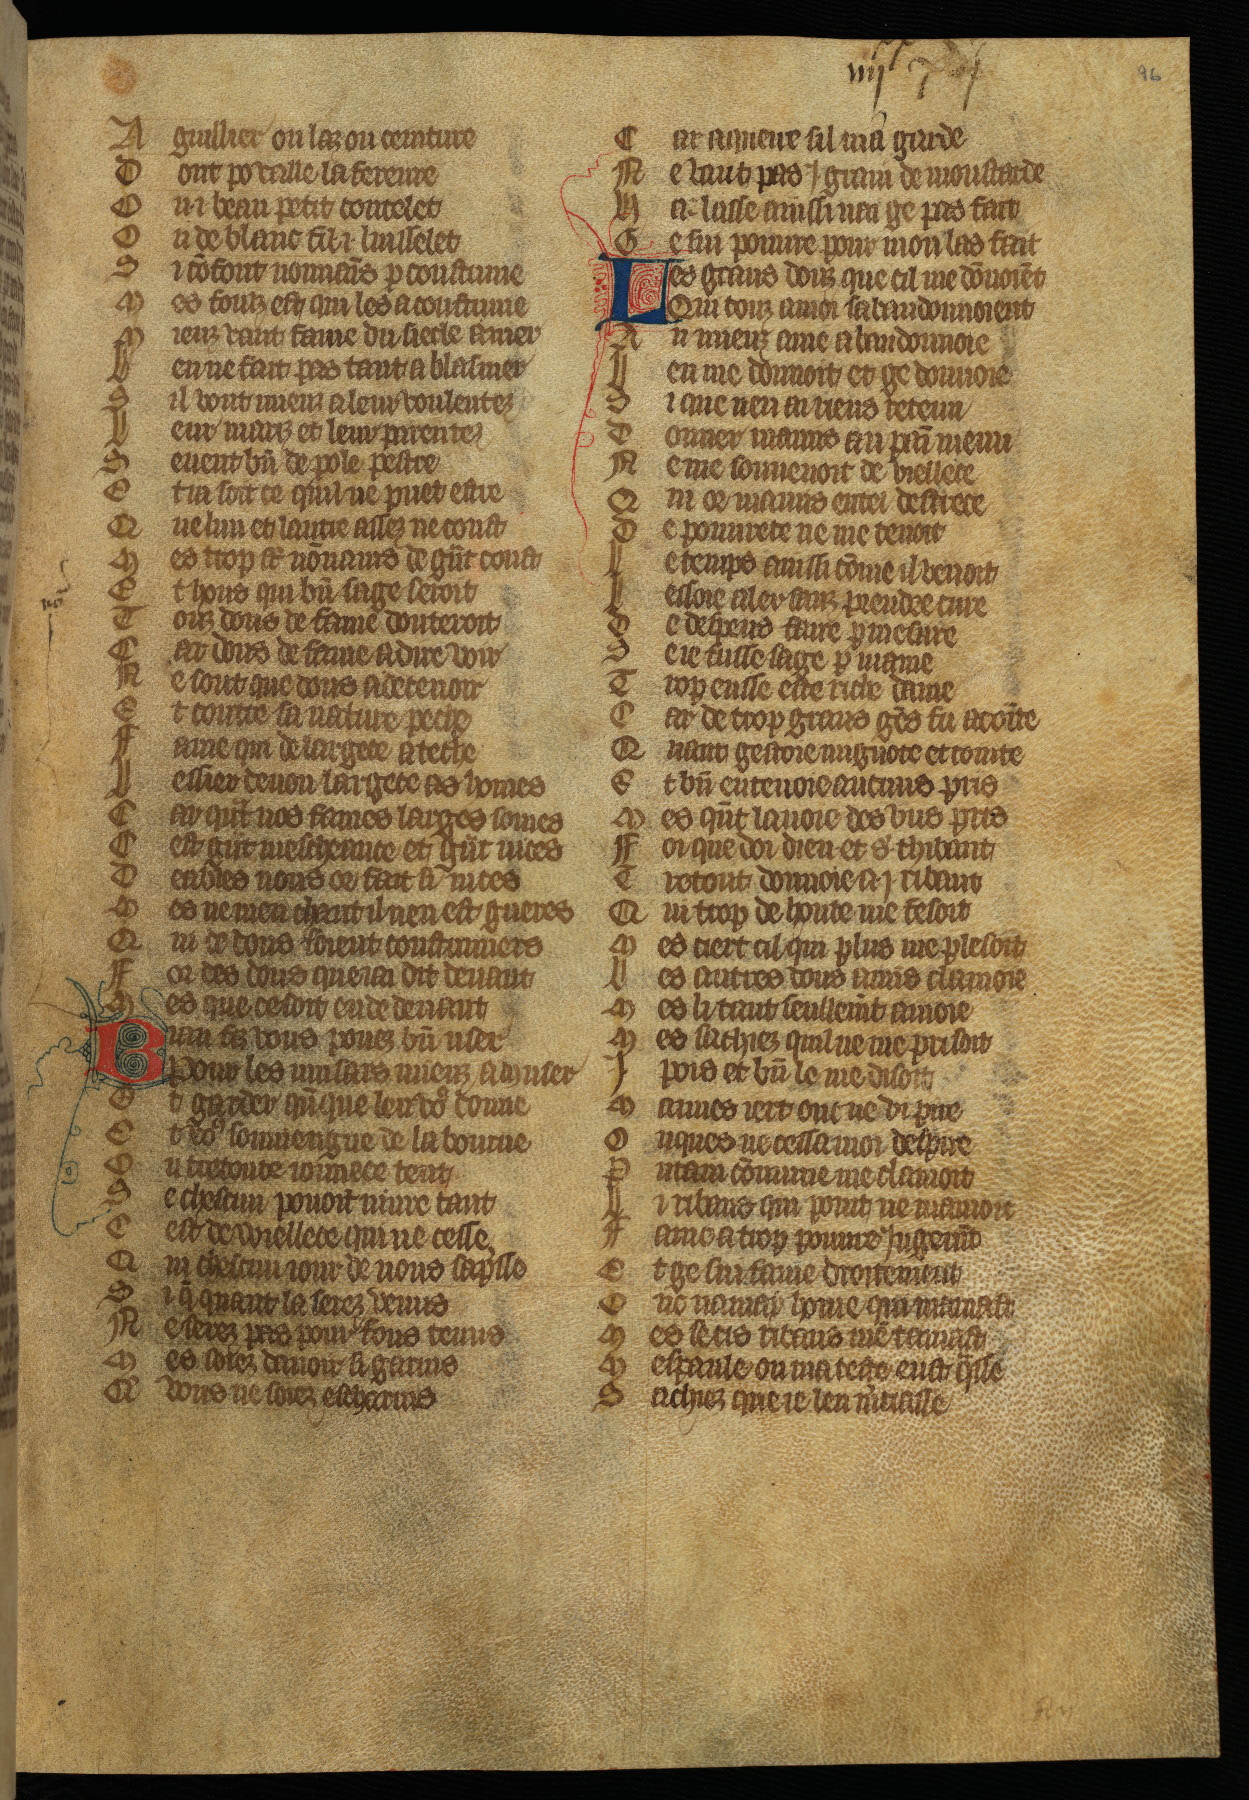 96
A guillier ou laz ou ceinture
D ont po vaille la ferrure
O u i beau petit coutelet
O u de blanc fil i luisselet
S i cōfont nonnaīs p coustume
M es foulz est qui les acoustume
M ieuz vaut fame du siecle amer
L en ne fait pas tant a blasmer
S il vont mieuz a leur voulentez
L eur mariz et leur parentez
S euent bn̄ de pole pestre
E t ia soit ce quil ne puet estre
Q ue lun et lautre assez ne coust
M es trop sōt nōnains de gn̄t coust
E t hons qui bn̄ sage seroit
T ouz dons de fame douteroit
C ar dons de fame a dire voir
N e sont que dons a deceuoir
E t contre sa nature peche
F ame qui de largece a teche
L essier deuon largece as homes
C ar qn̄t nos fames larges somes
C est gn̄t mescheance et gn̄t uices
D eables nous ce fait si nices
M es ne men chaut il nen est gueres
Q ui de dons soient coustumiers
F oi des dons que iai dit deuant
M es que ce soit en deceuant
B iau filz vous pouez bn̄ user
Pour les musars mieuz amuser
E t garder quāque len vo9 donne
E t vo9 souuiengne de la bourne
O u tretoute iounnece tent
S e chescun pouoit viure tant
C est de viellece qui ne cesse
Q ui chescun iour de nous sapsse
S i q̄ quant la serez venus
N e serez pas pour fous tenus
M es soiez dauoir si garnis
Q vous ne soiez escharnis
C ar aquerre sil nia garde
N e vaut pas j grain de moustarde
H a lasse ainssi nen ge pas fait
G e sui poure pour mon las fait
Les grans douz que cil me dōnoiēt
Qui touz amoi sabandonnoient
A u mieuz ame abandonnoie
L en me donnoit et ge donnoie
S i que nen ai riens retenu
D onner mamis au pain menu
N e me souuenoit de viellece
Q ui or mamis en tel destrece
D e pourete ne me tenoit
L e temps ainssi cōme il venoit
L essoie aler sanz prendre cure
D e despens faire p mesure
S e ie fusse sage p mame
T rop eusse este riche dame
C ar de trop grans gēs fu acoīte
Q uant gestoie mignote et cointe
E t bn̄ en tenoie aucuns pris
M es qn̄t iauoie des vns pris
F oi que doi dieu et s thibaut
T retout donnoie a j ribaut
Q ui trop de honte me fesoit
M es ciert cil qui plus me plesoit
L es autres touz amis clamoie
M es li tant seullemt amoie
M es sachiez quil ne me prisoit
J pois et bn̄ le me disoit
M auues iert onc ne vi pire
O nques ne cessa moi despire
P utain cōmune me clamoit
L i ribaus qui point ne mamoit
F ame a trop poure jugemt
E t ge sui fame droitement
O nc namay home qui mamast
M es se cis ribaus meust
M espaule ou ma teste eust q̄sse
S achiez que ie len mciasse